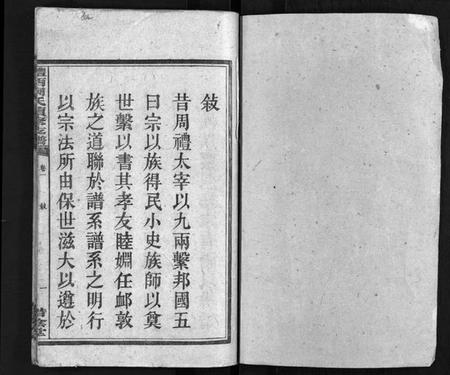 敍
昔周禮太宰以九兩繫邦國五
曰宗以族得民小史族師以奠
世繫以書其孝友睦婣任邮敦
族之道聯於譜系譜系之明行
以宗法所由保世滋大以遒於
卷
敍
一